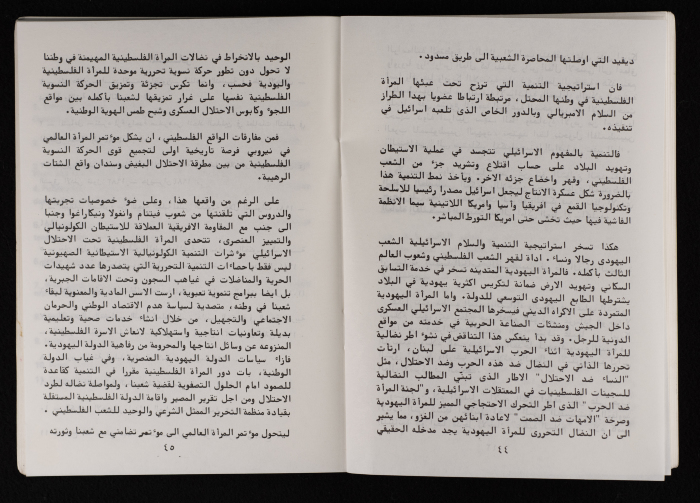 ديفيد التي اوصلتها المحاصرة الشعبية الى طريق مسدود .
فان استراتيجية التنمية التي ترزح تحت عبئها المرأة
الفلسطينية في وطنها المحتل ، مرتبطة ارتباطا عضويا بهذا الطراز
من السلام الامبريالي وبالدور الخاص الذى تلعبه اسرائيل في
تنفيذه .
فالتنمية بالمفهوم الاسرائيلي تتجسد في عملية الاستيطان
وتهويد البلاد على حساب اقتلاع وتشريد جزء من الشعب
الفلسطيني ، وقهر واخضاع جزئه الاخر . ويأخذ نمط التنمية هذا
بالضرورة شكل عسكرة الانتاج ليجعل اسرائيل مصدرا رئيسيا للاسلحة
وتكنولوجيا القمع في افريقيا وآسيا وامريكا اللاتينية سيما الانظمة
الفاشية فيها حيث تخشى حتى امريكا التورط المباشر .
هكذا تسخر استراتيجية التنمية والسلام الاسرائيلية الشعب
اليهودى رجالا ونساء ، اداة لقهر الشعب الفلسطيني وشعوب العالم
الثالث بأكمله ، فالمرأة اليهودية المتدينه تسخر في خدمة التسابق
السكاني وتهويد الارض ضمانة لتكريس اكثرية يهودية في البلاد
يشترطها الطابع اليهودى التوسعي للدولة . واما المرأة اليهودية
المتمردة على الاكراه الديني فيسخرها المجتمع الاسرائيلي العسكرى
داخل الجيش ومنشئات الصناعة الحربية في خدمته من مواقع
الدونية للرجل . وقد بدأ ينعكس هذا التناقض في نشوء اطر نضالية
للمرأة اليهودية اثناء الحرب الاسرائيلية على لبنان ، ارتأت
تحررها الذاتي في النضال ضد هذه الحرب وضد الاحتلال ، مثل
"النساء ضد الاحتلال" الاطار الذى تبنى المطالب النضالية
للسجينات الفلسطينيات في المعتقلات الاسرائيلية ، و"لجنة المرأة
ضد الحرب" الذى اطر التحرك الاحتجاجي المميز للمرأة اليهودية
وصرخة "الامهات ضد الصمت" لاعادة ابنائهن من الغزو ، مما يشير
الى ان النضال التحررى للمرأة اليهودية يجد مدخله الحقيقي
٤٤
الوحيد بالانخراط في نضالات المرأة الفلسطينية المهيمنة في وطننا
لا تحول دون تطور حركة نسوية تحررية موحدة للمرأة الفلسطينية
واليهودية فحسب ، وانما تكرس تجزئة وتمزيق الحركة النسوية
الفلسطينية نفسها على غرار تمزيقها لشعبنا بأكمله بين مواقع
اللجوء وكابوس الاحتلال العسكرى وشبح طمس الهوية الوطنية .
فمن مفارقات الواقع الفلسطيني ، ان يشكل مؤتمر المرأة العالمي
في نيروبي فرصة تاريخية اولى لتجميع قوى الحركة النسوية
الفلسطينية من بين مطرقة الاحتلال البغيض وسندان واقع الشتات
الرهيبة .
على الرغم من واقعها هذا ، وعلى ضوء خصوصيات تجربتها
والدروس التي تلقنتها من شعوب فيتنام وانغولا ونيكاراغوا وجنبا
الى جنب مع المقاومة الافريقية العملاقة للاستيطان الكولونيالي
والتمييز العنصرى ، تتحدى المرأة الفلسطينية تحت الاحتلال
الاسرائيلي مؤشرات التنمية الكولونيالية الاستيطانية الصهيونية
ليس فقط باحصاءات التنمية التحررية التي يتصدرها عدد شهيدات
الحرية والمناضلات في غياهب السجون وتحت الاقامات الجبرية ،
بل ايضا ببرامج تنموية تعبوية ، ارست الاسس المادية والمعنوية لبقاء
شعبنا في وطنه ، متصدية لسياسة هدم الاقتصاد الوطني والحرمان
الاجتماعي والتجهيل ، من خلال انشاء خدمات صحية وتعليمية
بديلة وتعاونيات انتاجية واستهلاكية لانعاش الاسرة الفلسطينية ،
المنزوعه عن وسائل انتاجها والمحرومة من رفاهية الدولة اليهودية .
فازاء سياسات الدولة اليهودية العنصرية ، وفي غياب الدولة
الوطنية ، بات دور المرأة الفلسطينية مقررا في التنمية كقاعدة
للصمود امام الحلول التصفوية لقضية شعبنا ، ولمواصلة نضاله لطرد
الاحتلال ومن اجل تقرير المصير واقامة الدولة الفلسطينية المستقلة
بقيادة منظمة التحرير الممثل الشرعي والوحيد للشعب الفلسطيني .
ليتحول مؤتمر المرأة العالمي الى مؤتمر تضامني مع شعبنا وثورته
٤٥